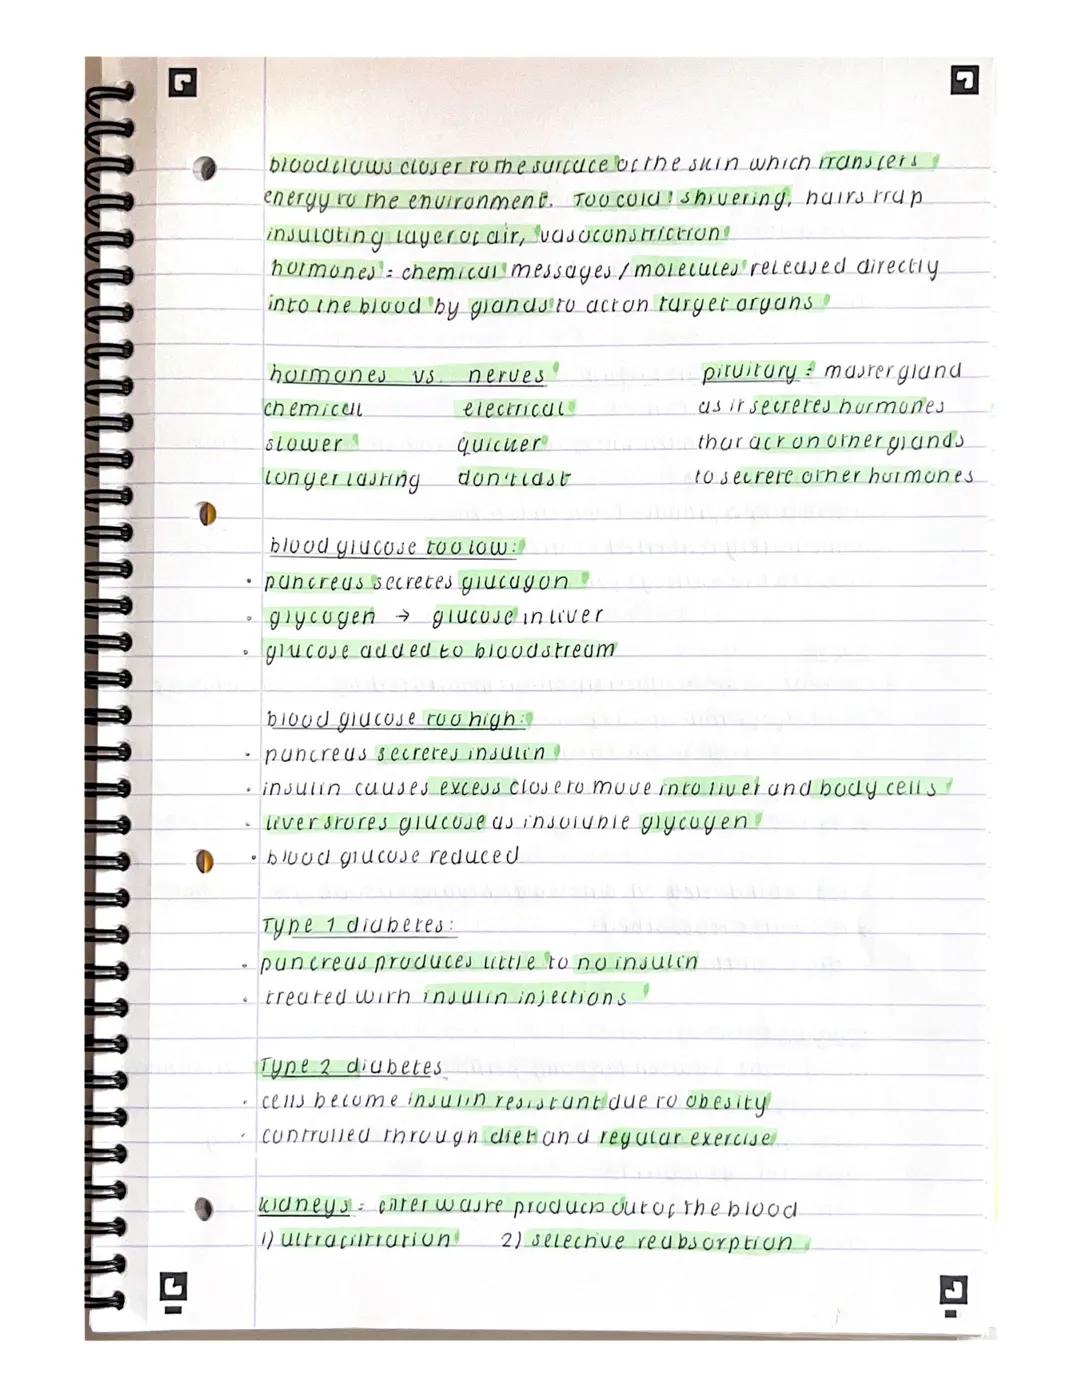 blood flows closer to the surface of the skin which transfers
energy to the environment. Too cold: shivering, hairs trap
insulating layer of air, vasoconstriction
hormones: chemical messages/molecules released directly
into the blood by glands to act on target organs
hormones vs. nerves
chemical electrical
slower quicker
longer lasting don't last
pituitary: master gland
as it secretes hormones
that act on other glands
to secrete other hormones
blood glucose too low:
• pancreas secretes glucagon
• glycogen → glucose in liver
• glucose added to bloodstream
blood glucose too high:
• pancreas secretes insulin
• insulin causes excess close to move into liver and body cells
• liver stores glucose as insoluble glycogen
• blood glucose reduced
Type 1 diabetes:
• pancreas produces little to no insulin
• treated with insulin injections
Type 2 diabetes
• cells become insulin resistant due to obesity
• controlled through diet and regular exercise
kidneys: filter waste products out of the blood
1) ultrafiltration 2) selective reabsorption